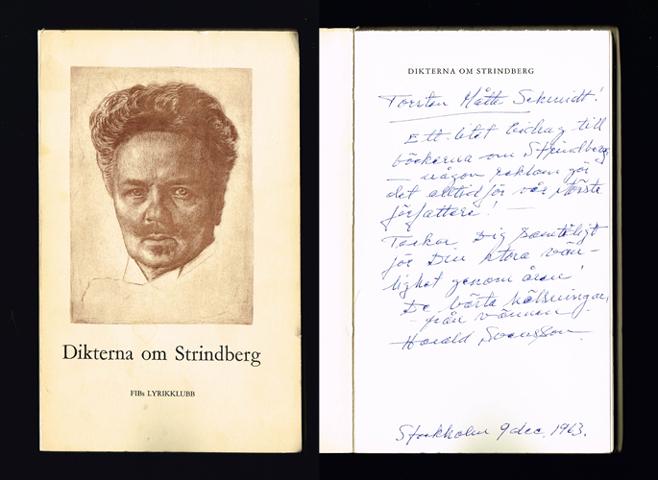 Dikterna om Strindberg
FIBs LYRIKKLUBB
DIKTERNA OM STRINDBERG
Torsten Måtte Schmidt!
Ett litet bidrag till
böckerna om Strindberg
— någon reklam gör
det alltid för vår störste
författare! —
Tackar Dig samtidigt
för Din stora vän-
lighet genom åren!
De bästa hälsningar,
från vännen
Harald Svensson
Stockholm 9 dec. 1963.